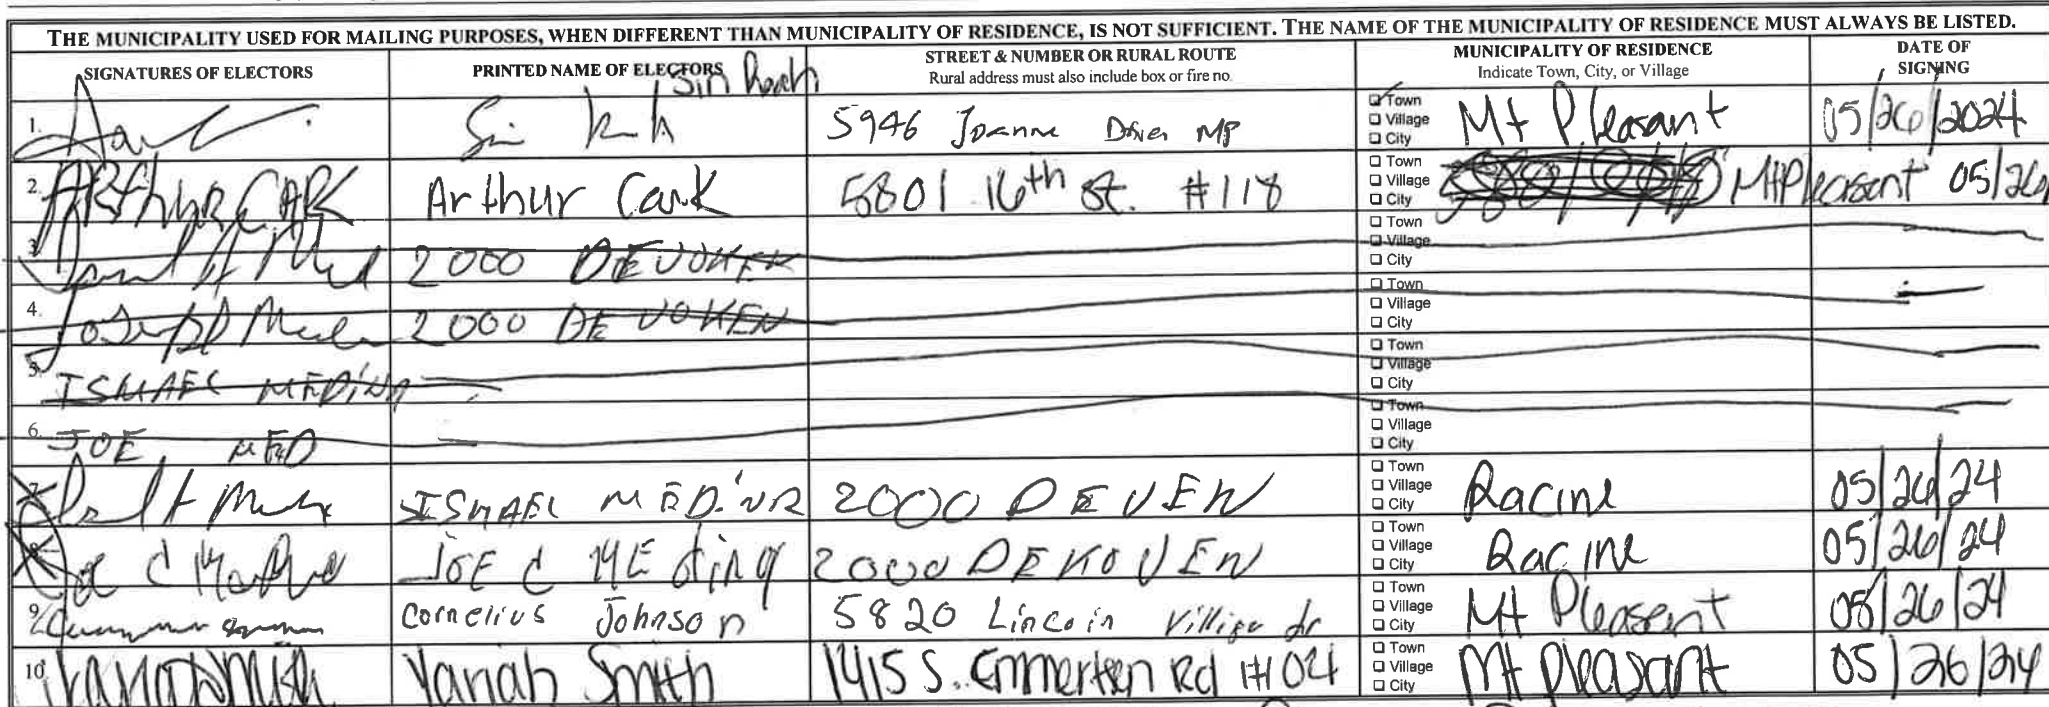 THE MUNICIPALITY USED FOR MAILING PURPOSES, WHEN DIFFERENT THAN MUNICIPALITY OF RESIDENCE, IS NOT SUFFICIENT. THE NAME OF THE MUNICIPALITY OF RESIDENCE MUST ALWAYS BE LISTED.
SIGNATURES OF ELECTORS
PRINTED NAME OF ELECTORS
STREET & NUMBER OR RURAL ROUTE
Rural address must also include box or fire no.
MUNICIPALITY OF RESIDENCE
Indicate Town, City, or Village
DATE OF
SIGNING
1. 5946 Joanne MP Town Village City Mt Pleasant 05/26/2024
2. ARthuR CARK Arthur Cark 5801 16th St. #118 Town Village City Mt Pleasant 05/26
3. 2000 DEVOKEN Town Village City
4. 2000 DEVOKEN Town Village City
5. ISMAEL MEDiNA Town Village City
6. JOE MED Town Village City
7. ISMAEL MEDiNA 2000 DEVEN Town Village City Racine 05/26/24
8. JOE C 2000 DEKOVEN Town Village City Racine 05/26/24
9. Cornelius Johnson 5820 Lincoln Town Village City Mt Pleasent 05/26/24
10. Smith 1415 S. Emmertsen Rd #104 Town Village City Mt Pleasant 05/26/24